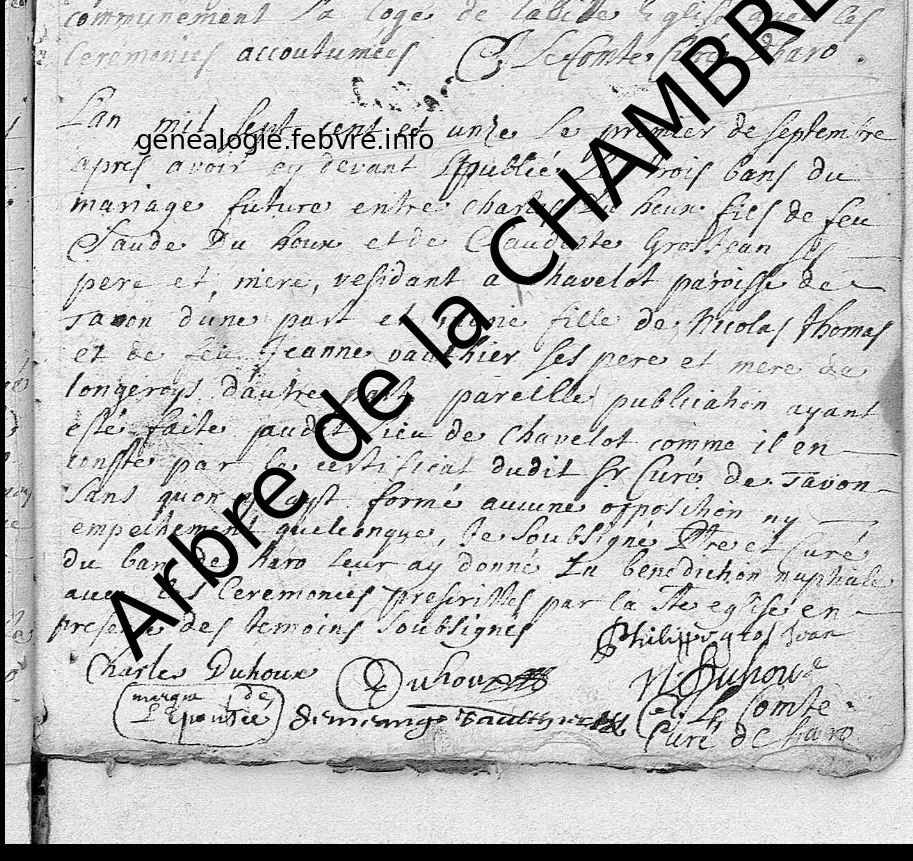 communement La loge de Eglise avec les
Ceremonies accoutumées C Le Comte Curé Dharo
Lan mil sept cent et unze Le premier de septembre
genealogie.febvre.info
apres avoir cy devant publiée trois bans du
mariage future entre charles Du houx fils de feu
Claude Du houx et de Claudette Grosjean ses
pere et mere, residant a Chavelot paroisse de
Tavon dune part et fille de Nicolas Thomas
et de feu Jeanne vaulthier ses pere et mere de
longeroys d'autre part pareille publication ayant
esté faite audit lieu de Chavelot comme il en
conste par le certificat dudit Sr Curé de Tavon
sans quon y ayt formé aucune opposition ny
empechement quelconque, Je soubsigné Ptre et Curé
du ban de haro leur ay donné La benediction nuptiale
avec les Ceremonies prescrittes par la Ste eglise en
presence des temoins soubsignés
Philippe grosJean
Charles Duhoux Duhoux N Duhoux
marque de
L'Epousée demenge Vaulthier C Le Comte
Curé de haro
Arbre de la CHAMBRE